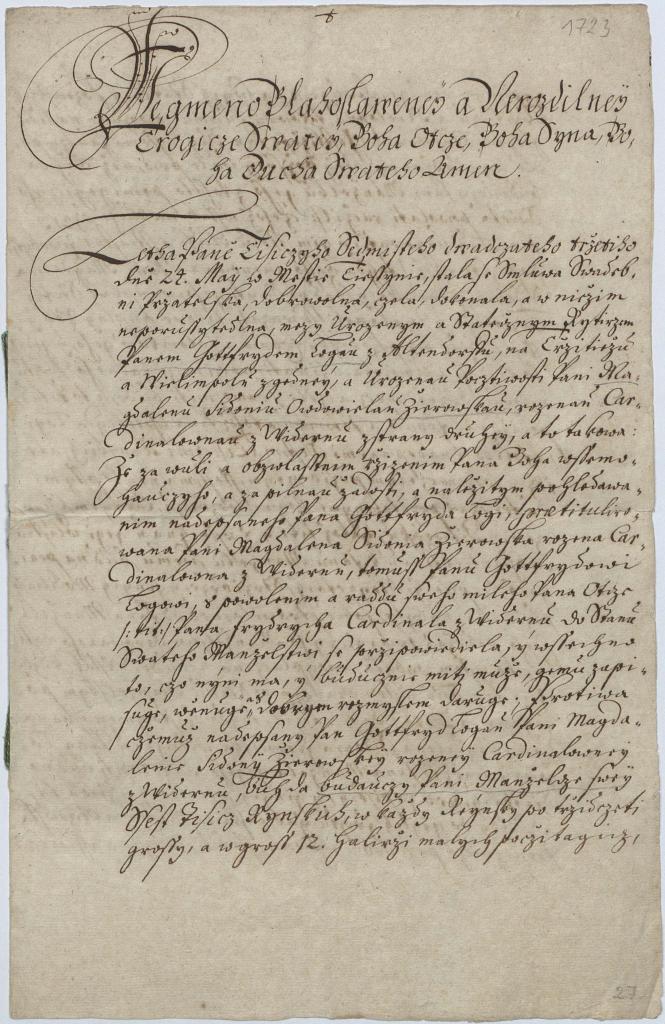 1723
We gmeno Blahoslaweneÿ a Nerozdilneÿ
Trogicze Swateÿ, Boha Otcze, Boha Syna, Bo,
ha Ducha Swateho Amen.
Letha Páně Tisiczyho Sedmisteho dwadczateho tržetiho
dně 24. Maÿ w Mestie Tiessynie, stala se Smluwa Swadeb,
ni Pržatelska, dobrowolna, czela, dokonala, a w niczim
neporussytedlna, mezy Urozenym a Statecznym Rytirzem
Panem Gottfrydem Logau z Altendorfku, na Tržitiežu
a Wielimpolu z gedney, a Urozenau Pocztiwosti Pani Ma,
gdalenu Sidoniu Owdowielau Zierowskau, rozenau Car,
dinalownau z Widernu z strany druheÿ, a to takowa:
Že za wuli a obzwlasstnim zržizenim Pana Boha wssemo,
hauczyho, a za pilnau žadosti, a naležitym pohledawa,
nim nadepsaneho Pana Gottfryda Logi, prætituliro,
wana Pani Magdalena Sidonia Zierowska rozena Car,
dinalowna z Widernu, tomuž Panu Gottfrydowi
Logowi, s powolenim a raddu sweho mileho Pana Otcze
/:tit:/ Pana Frydrycha Cardinala z Widernu do Stawu
Swateho Manželstwi se pržipowiediela, ÿ wssechno
to, czo nyni ma, ÿ buducznie miti muže, gemu zapi,
suge, wěnuge, a s dobrym rozmyslem daruge; Protiwa
czemuž nadepsany Pan Gottfryd Logau Pani Magda,
lenie Sidonÿ Zierowskeÿ rozeneÿ Cardinalowneÿ
z Widernu, buh da budauczy Pani Manželcze sweÿ
Ssest Tisicz Rynskich, w každy Reynsky po tržidczeti
grossÿ, a w gross 12. Halirži malych pocžitagicz,
27